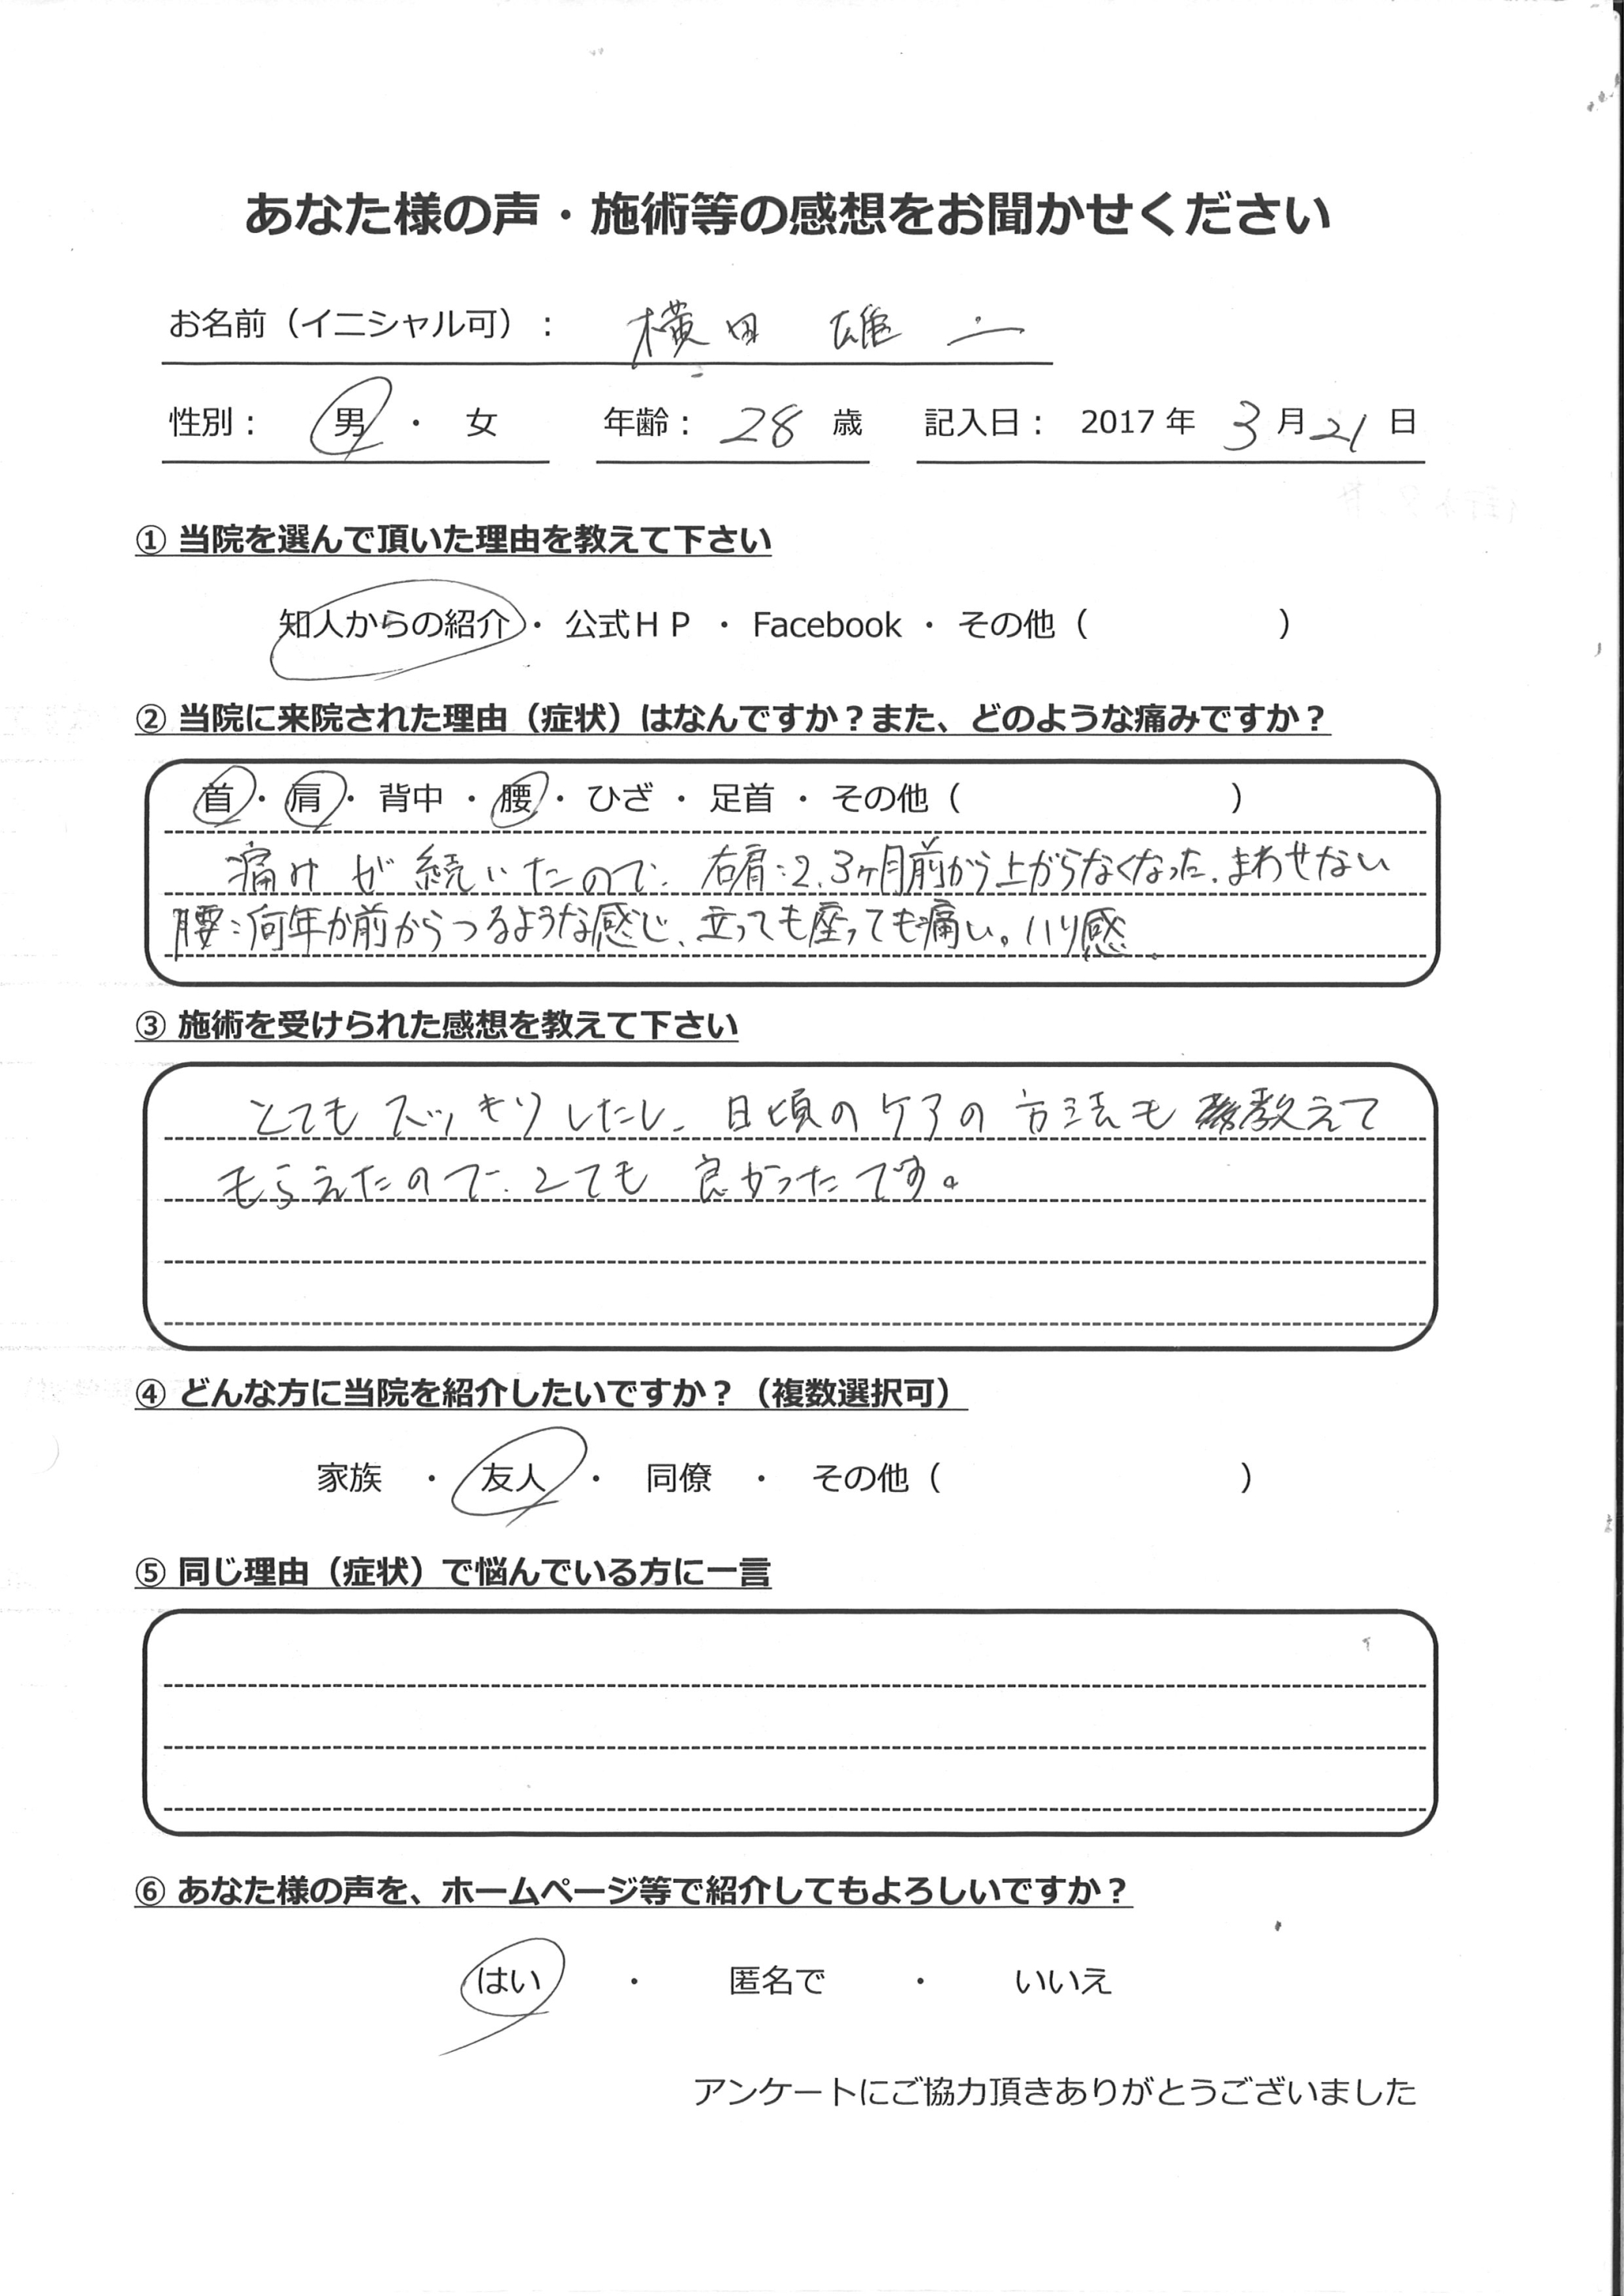 あなた様の声・施術等の感想をお聞かせください
お名前（イニシャル可）： 横田 雄二
性別： 男 ・ 女 年齢： 28 歳 記入日： 2017 年 3 月 21 日
① 当院を選んで頂いた理由を教えて下さい
知人からの紹介 ・ 公式ＨＰ ・ Facebook ・ その他（ ）
② 当院に来院された理由（症状）はなんですか？また、どのような痛みですか？
首 ・ 肩 ・ 背中 ・ 腰 ・ ひざ ・ 足首 ・ その他（ ）
痛みが続いたので、右肩：2、3ヶ月前から上がらなくなった、まわせない
腰：何年か前からつるような感じ、立っても座っても痛い。ハリ感、
③ 施術を受けられた感想を教えて下さい
とてもスッキリしたし、日頃のケアの方法も教えて
もらえたので、とても良かったです。
④ どんな方に当院を紹介したいですか？（複数選択可）
家族 ・ 友人 ・ 同僚 ・ その他（ ）
⑤ 同じ理由（症状）で悩んでいる方に一言
⑥ あなた様の声を、ホームページ等で紹介してもよろしいですか？
はい ・ 匿名で ・ いいえ
アンケートにご協力頂きありがとうございました